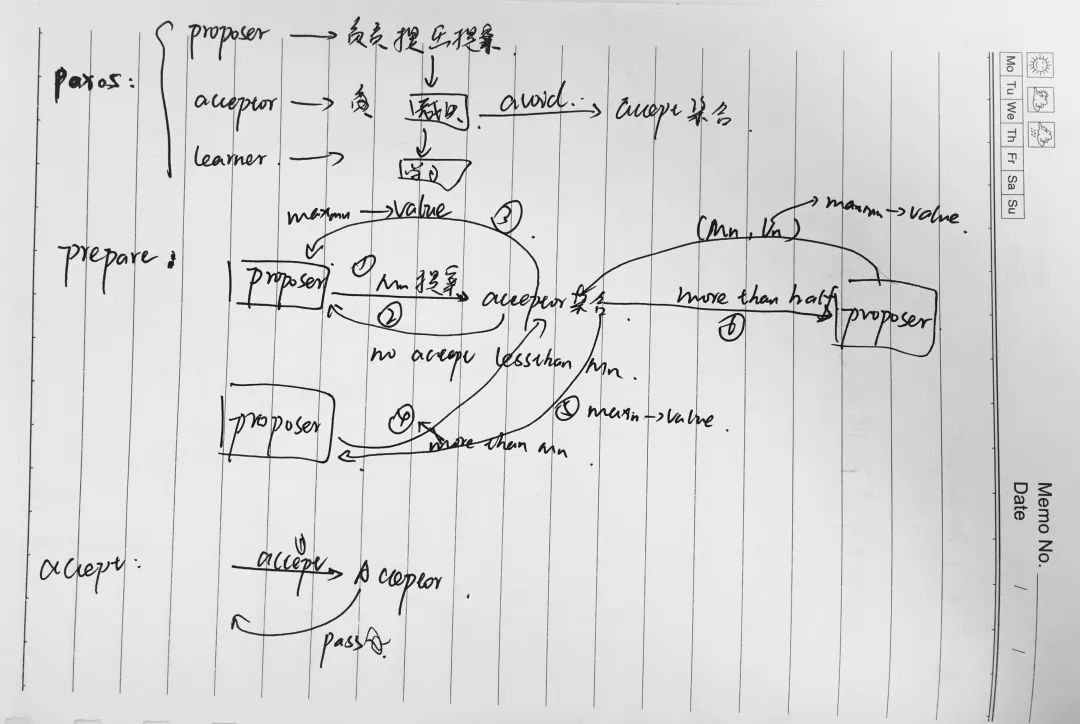 paxos:
proposer → 负责提出提案
acceptor → 负 裁决 avoid.. → accept 集合
learner → 学习
prepare:
maxmn → value ③
(Mn, Vn) → maxmn → value.
proposer ① Mn 提案 acceptor 集合 more than half proposer
② ⑥
no accept less than Mn.
proposer ④ more than mn ⑤ maxn → value.
accept:
① accept Acceptor.
pass
Mo Tu We Th Fr Sa Su
Memo No.
Date / /